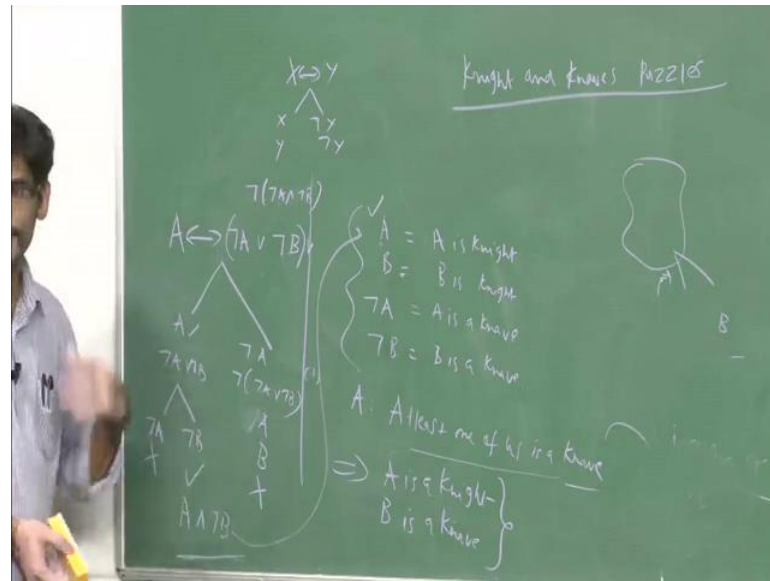 Knight and Knaves Puzzles
X↔Y
X ¬Y
Y ¬Y
¬(¬A∧¬B)
A↔(¬A∨¬B)
A ✓
¬A∨¬B
¬A ¬B
+ ✓
A∧¬B
¬A
¬(¬A∨¬B)
A
B
+
✓
A = A is knight
B = B is knight
¬A = A is a knave
¬B = B is a knave
A: Atleast one of us is a knave
⇒ A is a knight
B is a knave
B